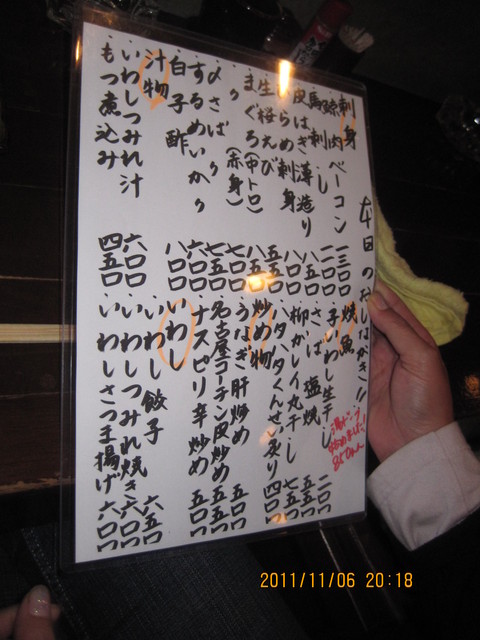 本日のおしながき!!
刺身
鯨肉ベーコン 一三〇〇
馬刺し 一二〇〇
皮はぎ薄造り 八五〇
ひらめ刺身 八〇〇
生桜えび 八五〇
まぐろ(中トロ) 八五〇
〃(赤身) 七五〇
〆さば〃 七〇〇
するめいか〃 六五〇
白子酢 八〇〇
汁物
いわしつみれ汁 六〇〇
もつ煮込み 四五〇
焼魚
子いわし生干し 二〇〇
さば塩焼 五五〇
柳かレイ丸干し 七五〇
ハタハタくんせい炙り 四〇〇
炒め物
うなぎ肝炒め 五五〇
名古屋コーチン皮炒め 五〇〇
ナスピリ辛炒め 五〇〇
いわし
いわし餃子 六五〇
いわしつみれ焼き 六〇〇
いわしさつま揚げ 六〇〇
始めました!!
2011/11/06 20:18